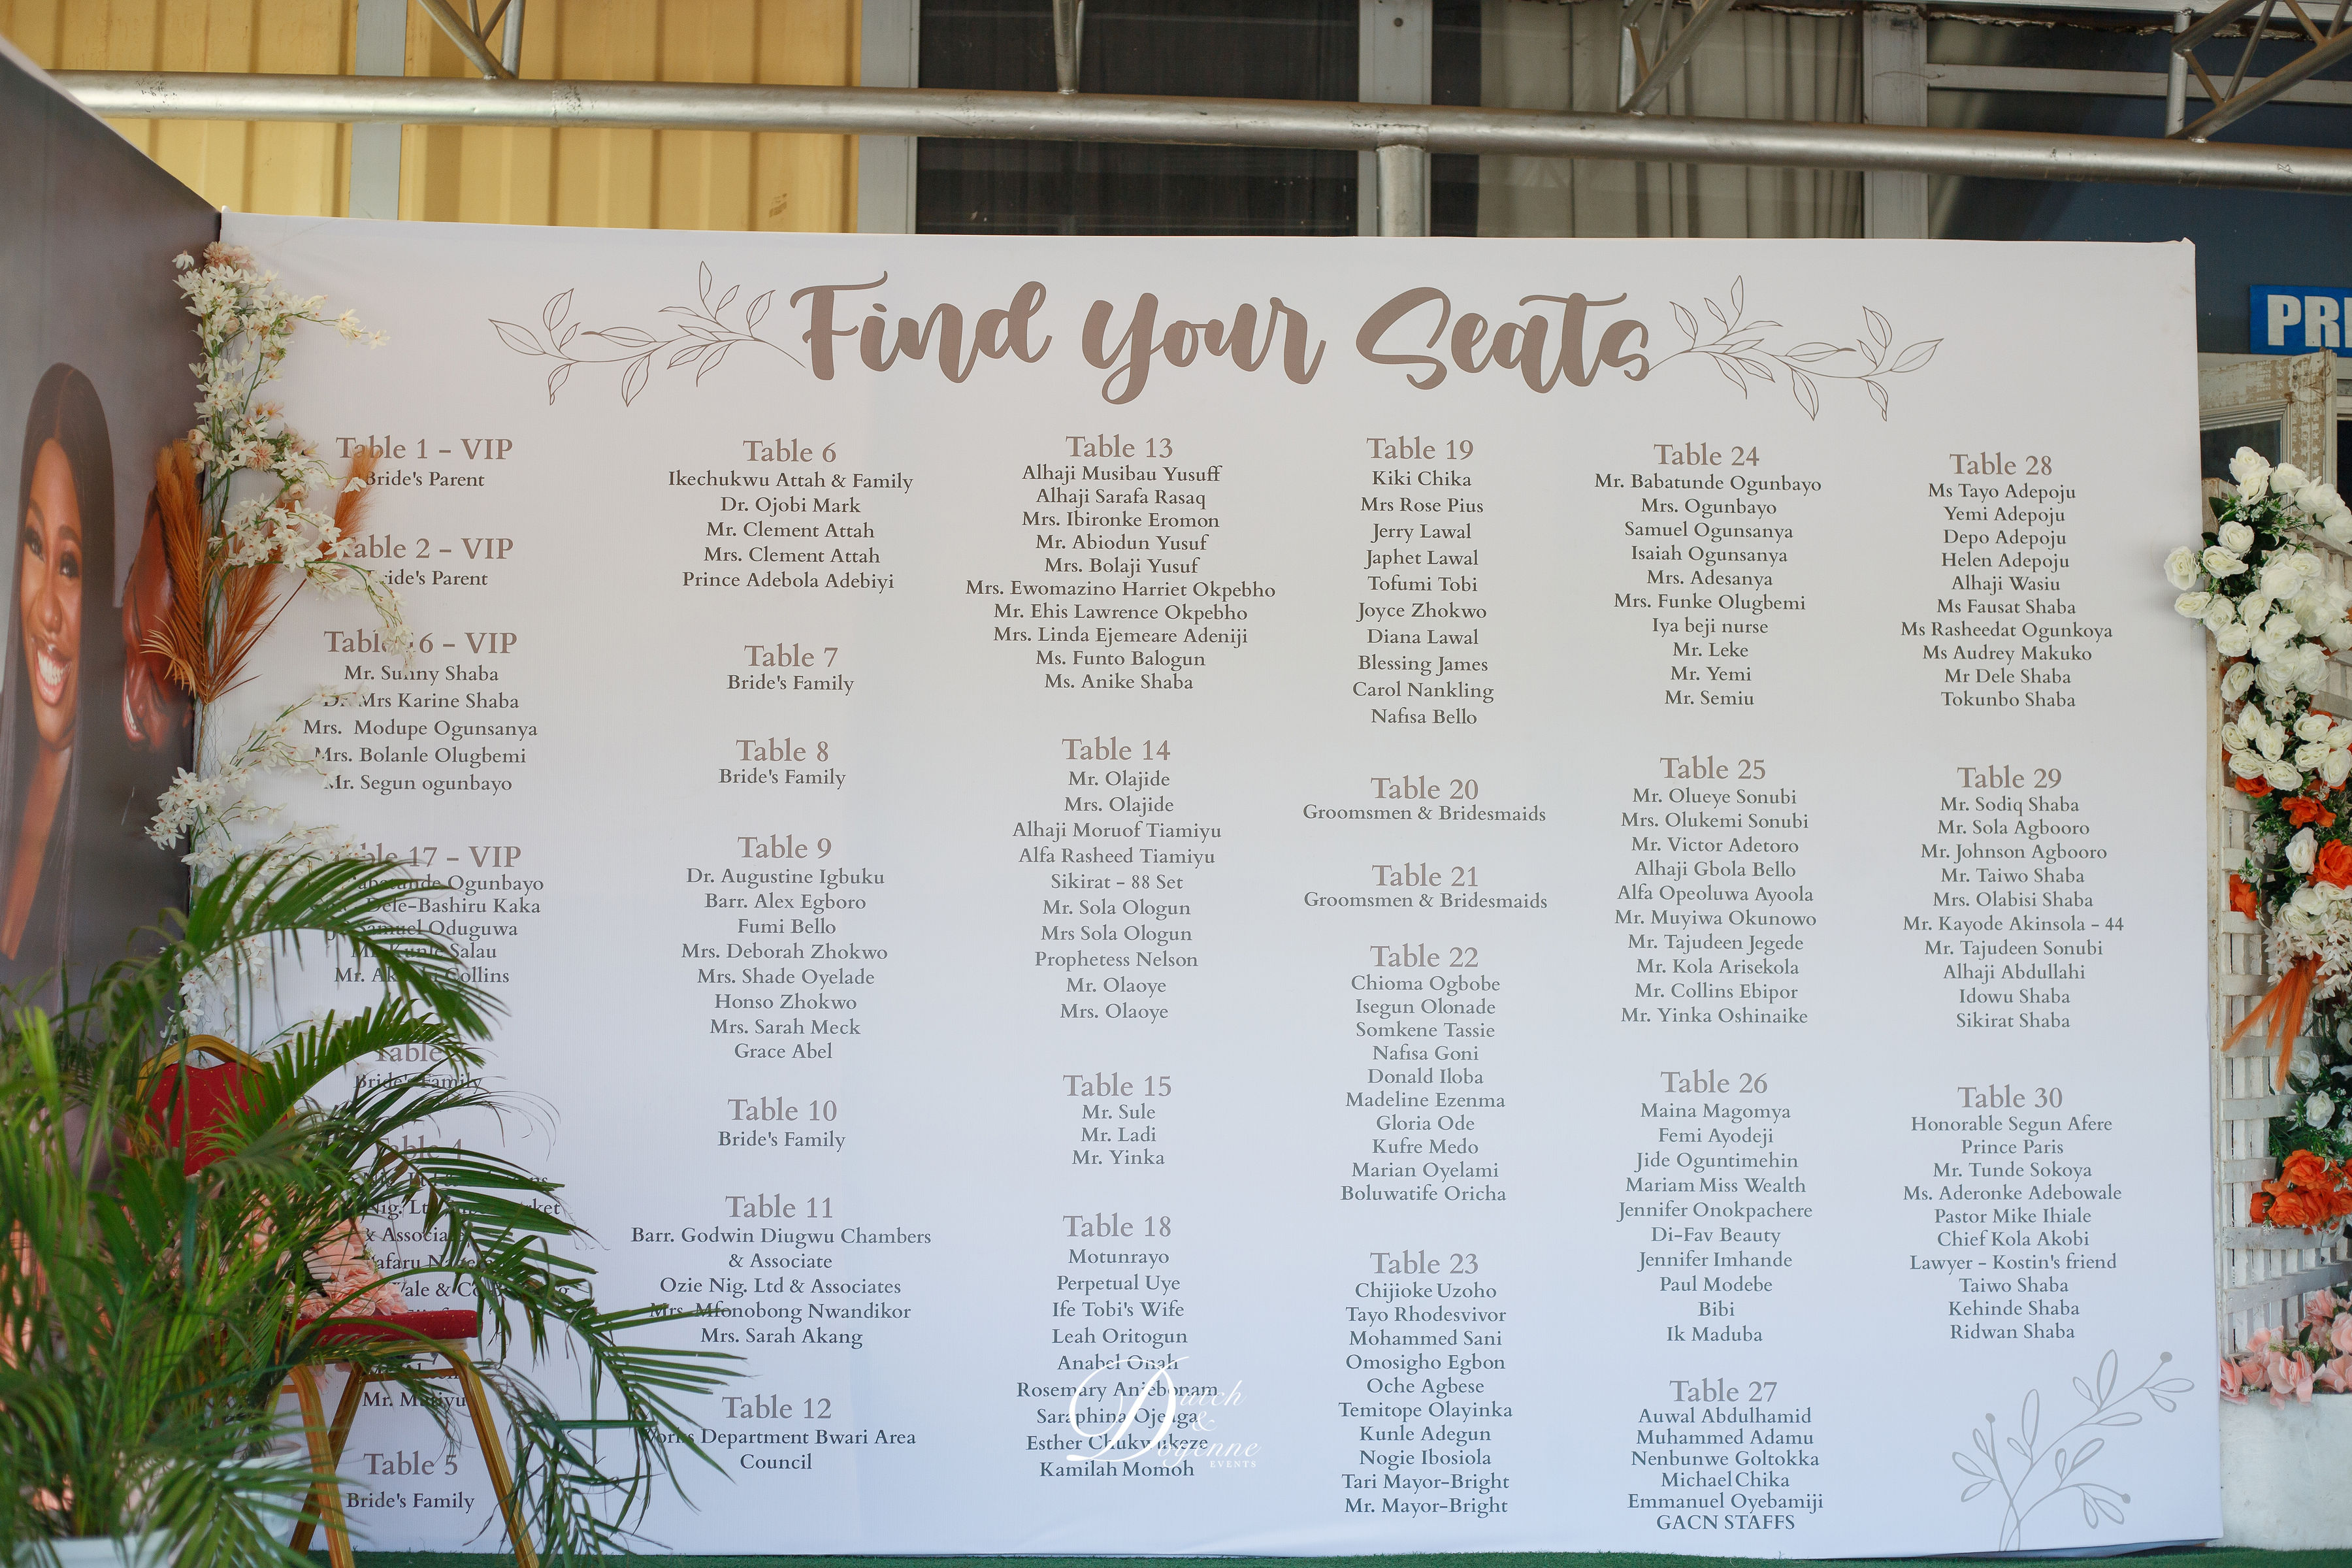 PRI
Find Your Seats
Table 1 - VIP
Bride's Parent
Table 2 - VIP
Bride's Parent
Table 16 - VIP
Mr. Sunny Shaba
Dr. Mrs Karine Shaba
Mrs. Modupe Ogunsanya
Mrs. Bolanle Olugbemi
Mr. Segun ogunbayo
Table 17 - VIP
Ogunbayo
Dele-Bashiru Kaka
Samuel Oduguwa
Mr. Kunle Salau
Mr. Collins
Table
Bride's Family
Table 4
Nig. Ltd
Nig. Ltd
& Associates
Mr.
Table 5
Bride's Family
Table 6
Ikechukwu Attah & Family
Dr. Ojobi Mark
Mr. Clement Attah
Mrs. Clement Attah
Prince Adebola Adebiyi
Table 7
Bride's Family
Table 8
Bride's Family
Table 9
Dr. Augustine Igbuku
Barr. Alex Egboro
Fumi Bello
Mrs. Deborah Zhokwo
Mrs. Shade Oyelade
Honso Zhokwo
Mrs. Sarah Meck
Grace Abel
Table 10
Bride's Family
Table 11
Barr. Godwin Diugwu Chambers
& Associate
Ozie Nig. Ltd & Associates
Mrs. Mfonobong Nwandikor
Mrs. Sarah Akang
Table 12
Works Department Bwari Area
Council
Table 13
Alhaji Musibau Yusuff
Alhaji Sarafa Rasaq
Mrs. Ibironke Eromon
Mr. Abiodun Yusuf
Mrs. Bolaji Yusuf
Mrs. Ewomazino Harriet Okpebho
Mr. Ehis Lawrence Okpebho
Mrs. Linda Ejemeare Adeniji
Ms. Funto Balogun
Ms. Anike Shaba
Table 14
Mr. Olajide
Mrs. Olajide
Alhaji Moruof Tiamiyu
Alfa Rasheed Tiamiyu
Sikirat - 88 Set
Mr. Sola Ologun
Mrs Sola Ologun
Prophetess Nelson
Mr. Olaoye
Mrs. Olaoye
Table 15
Mr. Sule
Mr. Ladi
Mr. Yinka
Table 18
Motunrayo
Perpetual Uye
Ife Tobi's Wife
Leah Oritogun
Anabel Onah
Rosemary Aniebonam
Saraphina Ojenga
Esther Chukwukeze
Kamilah Momoh
Dutch
&
Doyenne
EVENTS
Table 19
Kiki Chika
Mrs Rose Pius
Jerry Lawal
Japhet Lawal
Tofumi Tobi
Joyce Zhokwo
Diana Lawal
Blessing James
Carol Nankling
Nafisa Bello
Table 20
Groomsmen & Bridesmaids
Table 21
Groomsmen & Bridesmaids
Table 22
Chioma Ogbobe
Isegun Olonade
Somkene Tassie
Nafisa Goni
Donald Iloba
Madeline Ezenma
Gloria Ode
Kufre Medo
Marian Oyelami
Boluwatife Oricha
Table 23
Chijioke Uzoho
Tayo Rhodesvivor
Mohammed Sani
Omosigho Egbon
Oche Agbese
Temitope Olayinka
Kunle Adegun
Nogie Ibosiola
Tari Mayor-Bright
Mr. Mayor-Bright
Table 24
Mr. Babatunde Ogunbayo
Mrs. Ogunbayo
Samuel Ogunsanya
Isaiah Ogunsanya
Mrs. Adesanya
Mrs. Funke Olugbemi
Iya beji nurse
Mr. Leke
Mr. Yemi
Mr. Semiu
Table 25
Mr. Olueye Sonubi
Mrs. Olukemi Sonubi
Mr. Victor Adetoro
Alhaji Gbola Bello
Alfa Opeoluwa Ayoola
Mr. Muyiwa Okunowo
Mr. Tajudeen Jegede
Mr. Kola Arisekola
Mr. Collins Ebipor
Mr. Yinka Oshinaike
Table 26
Maina Magomya
Femi Ayodeji
Jide Oguntimehin
Mariam Miss Wealth
Jennifer Onokpachere
Di-Fav Beauty
Jennifer Imhande
Paul Modebe
Bibi
Ik Maduba
Table 27
Auwal Abdulhamid
Muhammed Adamu
Nenbunwe Goltokka
Michael Chika
Emmanuel Oyebamiji
GACN STAFFS
Table 28
Ms Tayo Adepoju
Yemi Adepoju
Depo Adepoju
Helen Adepoju
Alhaji Wasiu
Ms Fausat Shaba
Ms Rasheedat Ogunkoya
Ms Audrey Makuko
Mr Dele Shaba
Tokunbo Shaba
Table 29
Mr. Sodiq Shaba
Mr. Sola Agbooro
Mr. Johnson Agbooro
Mr. Taiwo Shaba
Mrs. Olabisi Shaba
Mr. Kayode Akinsola - 44
Mr. Tajudeen Sonubi
Alhaji Abdullahi
Idowu Shaba
Sikirat Shaba
Table 30
Honorable Segun Afere
Prince Paris
Mr. Tunde Sokoya
Ms. Aderonke Adebowale
Pastor Mike Ihiale
Chief Kola Akobi
Lawyer - Kostin's friend
Taiwo Shaba
Kehinde Shaba
Ridwan Shaba